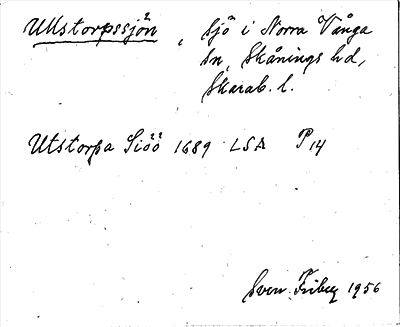 Ullstorpssjön, Sjö i Norra Vånga
sn, Skånings hd,
Skarab. l.
Utstorpa Siöö 1689 LSA P14
Sven Friberg 1956